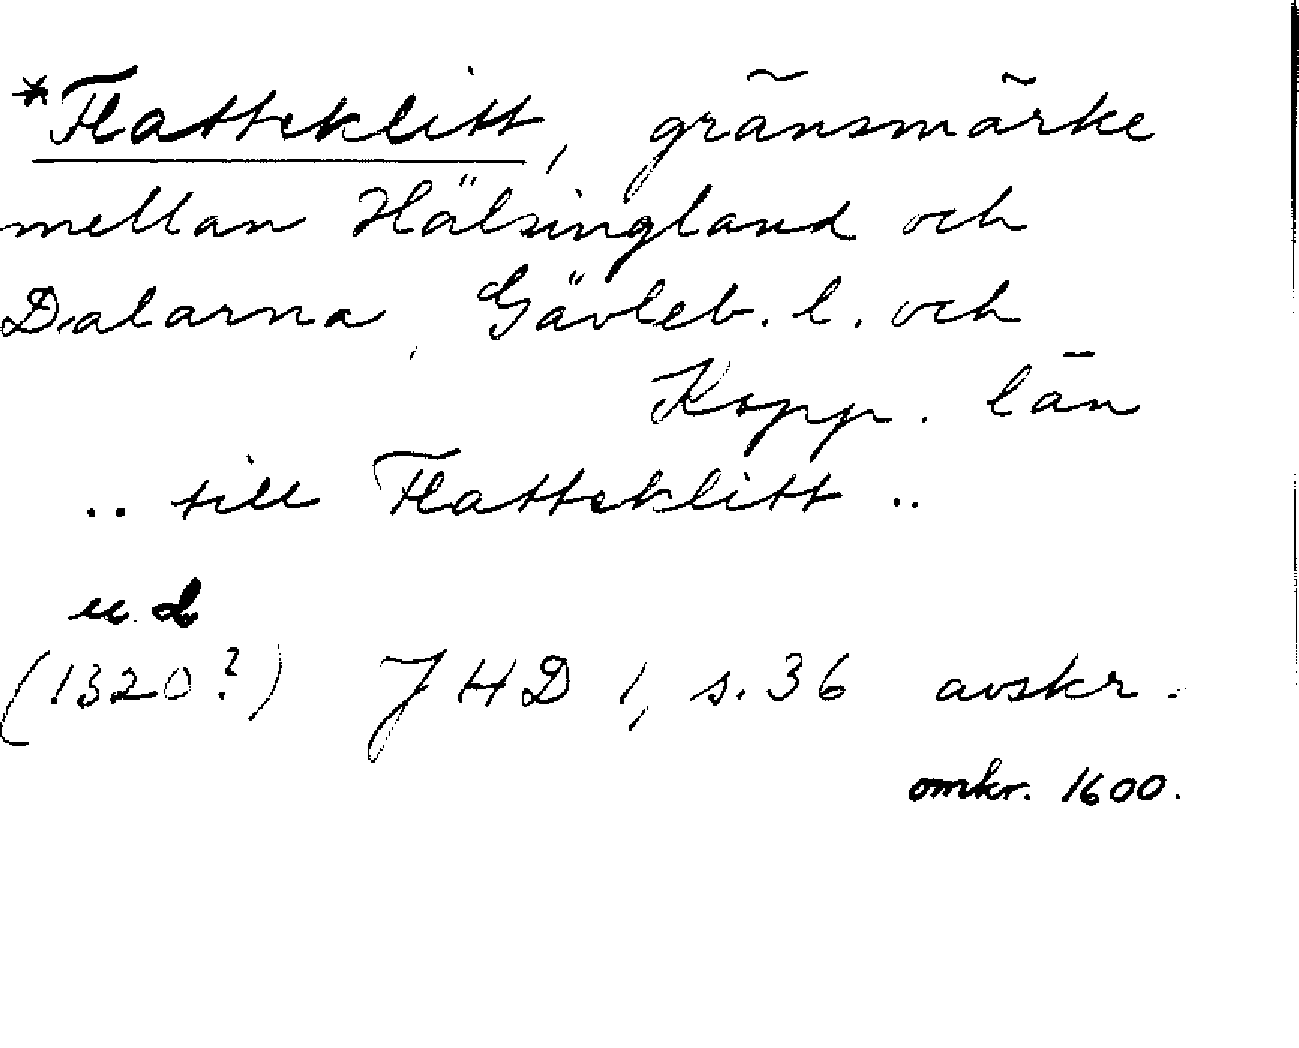 *Flatteklitt, gränsmärke
mellan Hälsingland och
Dalarna, Gävleb. l. och
Kopp. län
.. till Flatteklitt ..
u. d
(1320?) JHD 1, s. 36 avskr.
omkr. 1600.